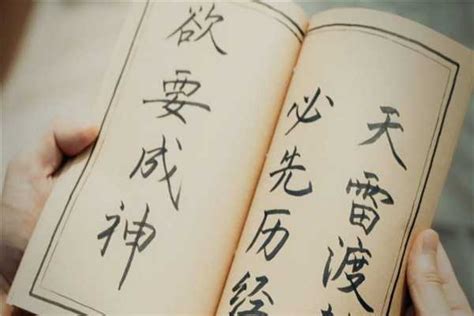 欲要成神
必先历经
天雷渡